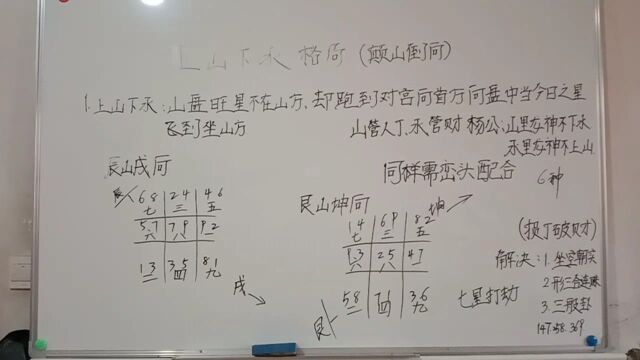 上山下水格局(颠山倒向)
1.上山下水:山盘旺星不在山方,却跑到对宫向首方向盘中当令日之星
飞到坐山方
山管人丁、水管财 杨公:山里龙神不下水
水里龙神不上山
同样需峦头配合
6种
辰山戌向
68 24 46
七 三 五
5.7 7.9 9.2
六 八
1.3 3.5 8.1
二 四 九
戌
艮山坤向
坤
1.4 6.9 8.2
七 三 五
9.3 2.5 4.7
六 八
5.8 7.1 3.6
二 四 九
艮
七星打劫
(损丁破财)
解决:1.坐空朝实
2形三合连珠
3.三般卦
147.258.369